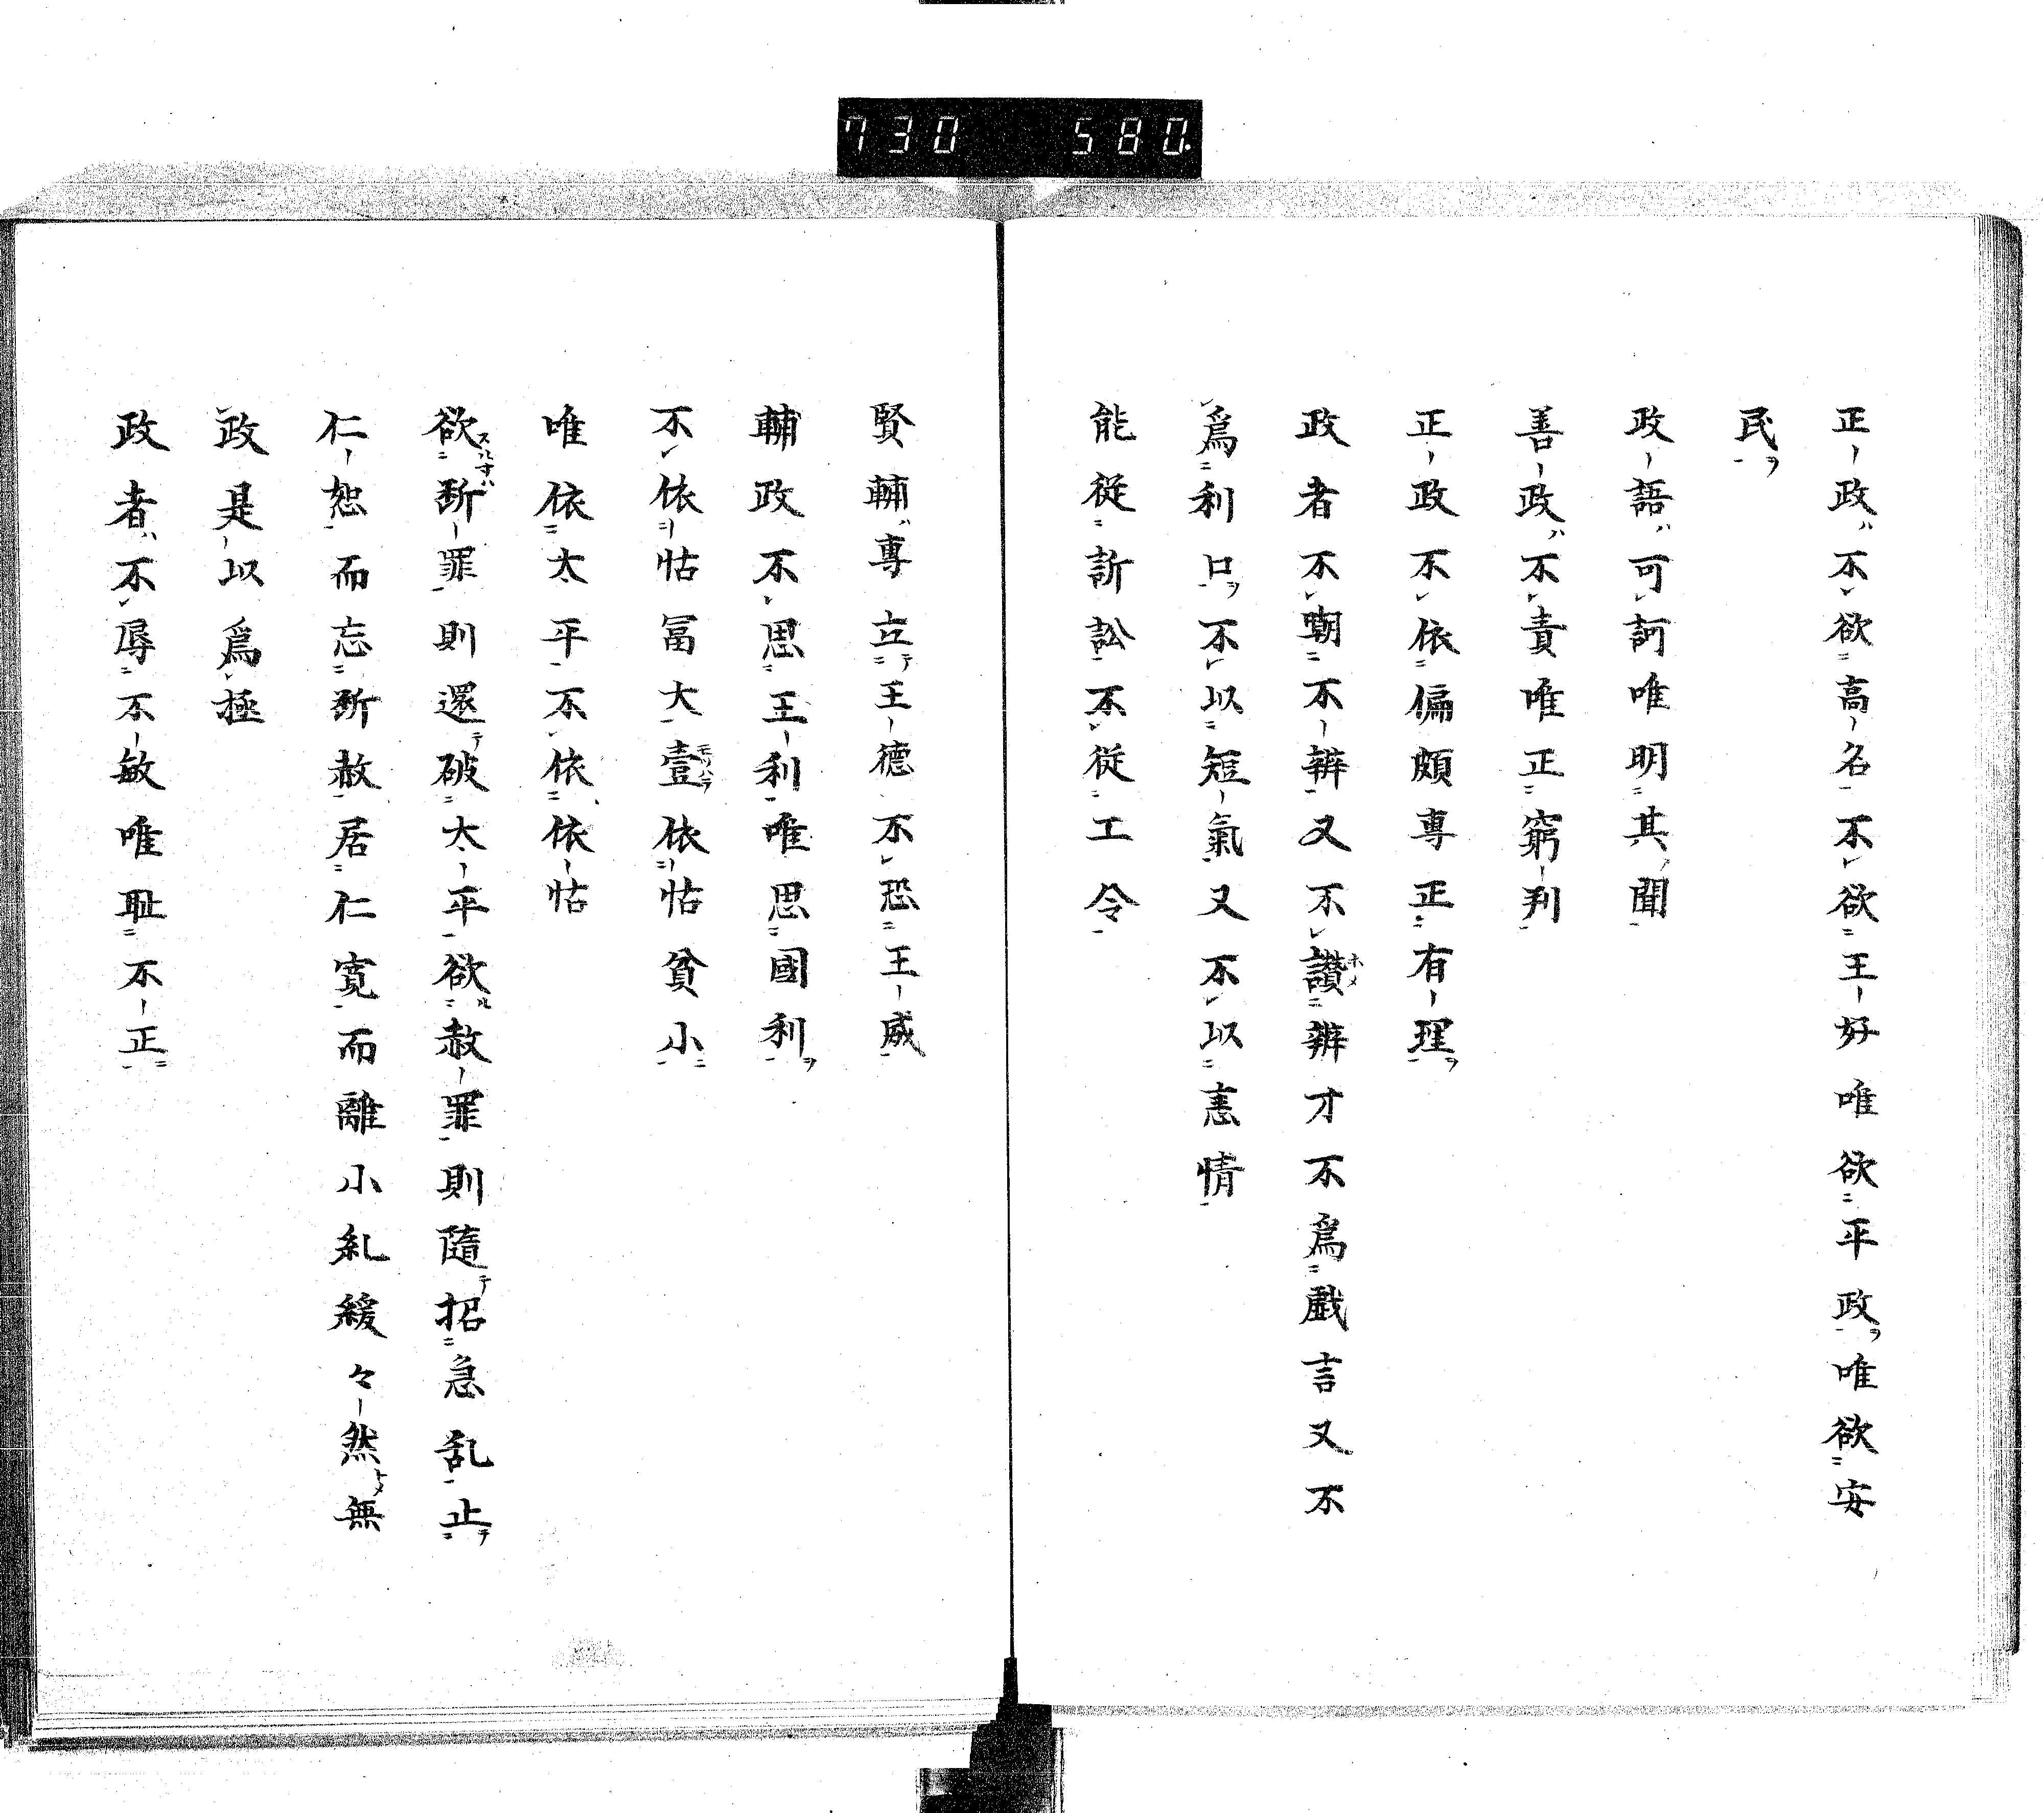 730 580
正政不欲高名不欲王好唯欲平政唯欲安
民
政語可訶唯明其聞
善政不責唯正窮判
正政不依偏頗専正有理
政者不嘲不辨又不讃辨才不爲戯言又不
爲利口不以短氣又不以恚情
能従訴訟不従工令
賢輔専立王德不恐王威
輔政不思王利唯思國利
不依怙冨大壹依怙貧小
唯依太平不依依怙
欲断罪則還破太平欲赦罪則隨招急乱止
仁恕而忘断赦居仁寛而離小糺緩々然無
政是以爲極
政者不辱不敏唯耻不正